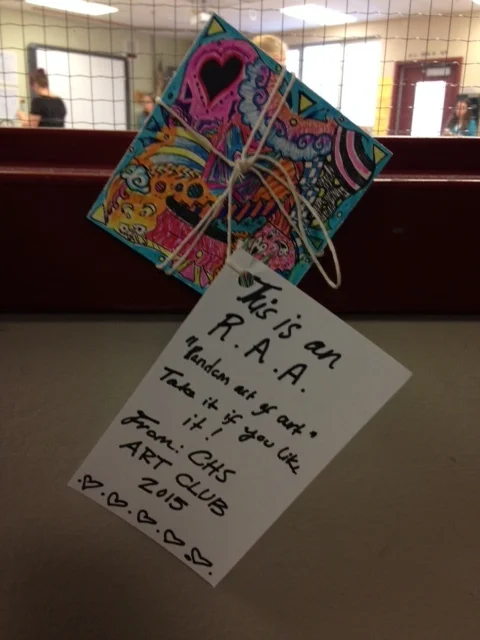 This is an
R.A.A.
"Random act of art"
Take it if you like
it!
From: CHS
ART CLUB
2015